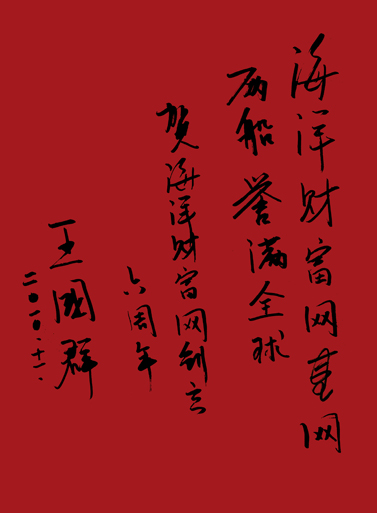 海洋财富网网
两船 誉满全球
贺海洋财富网创立
六周年
王国群
二〇一〇.十一.